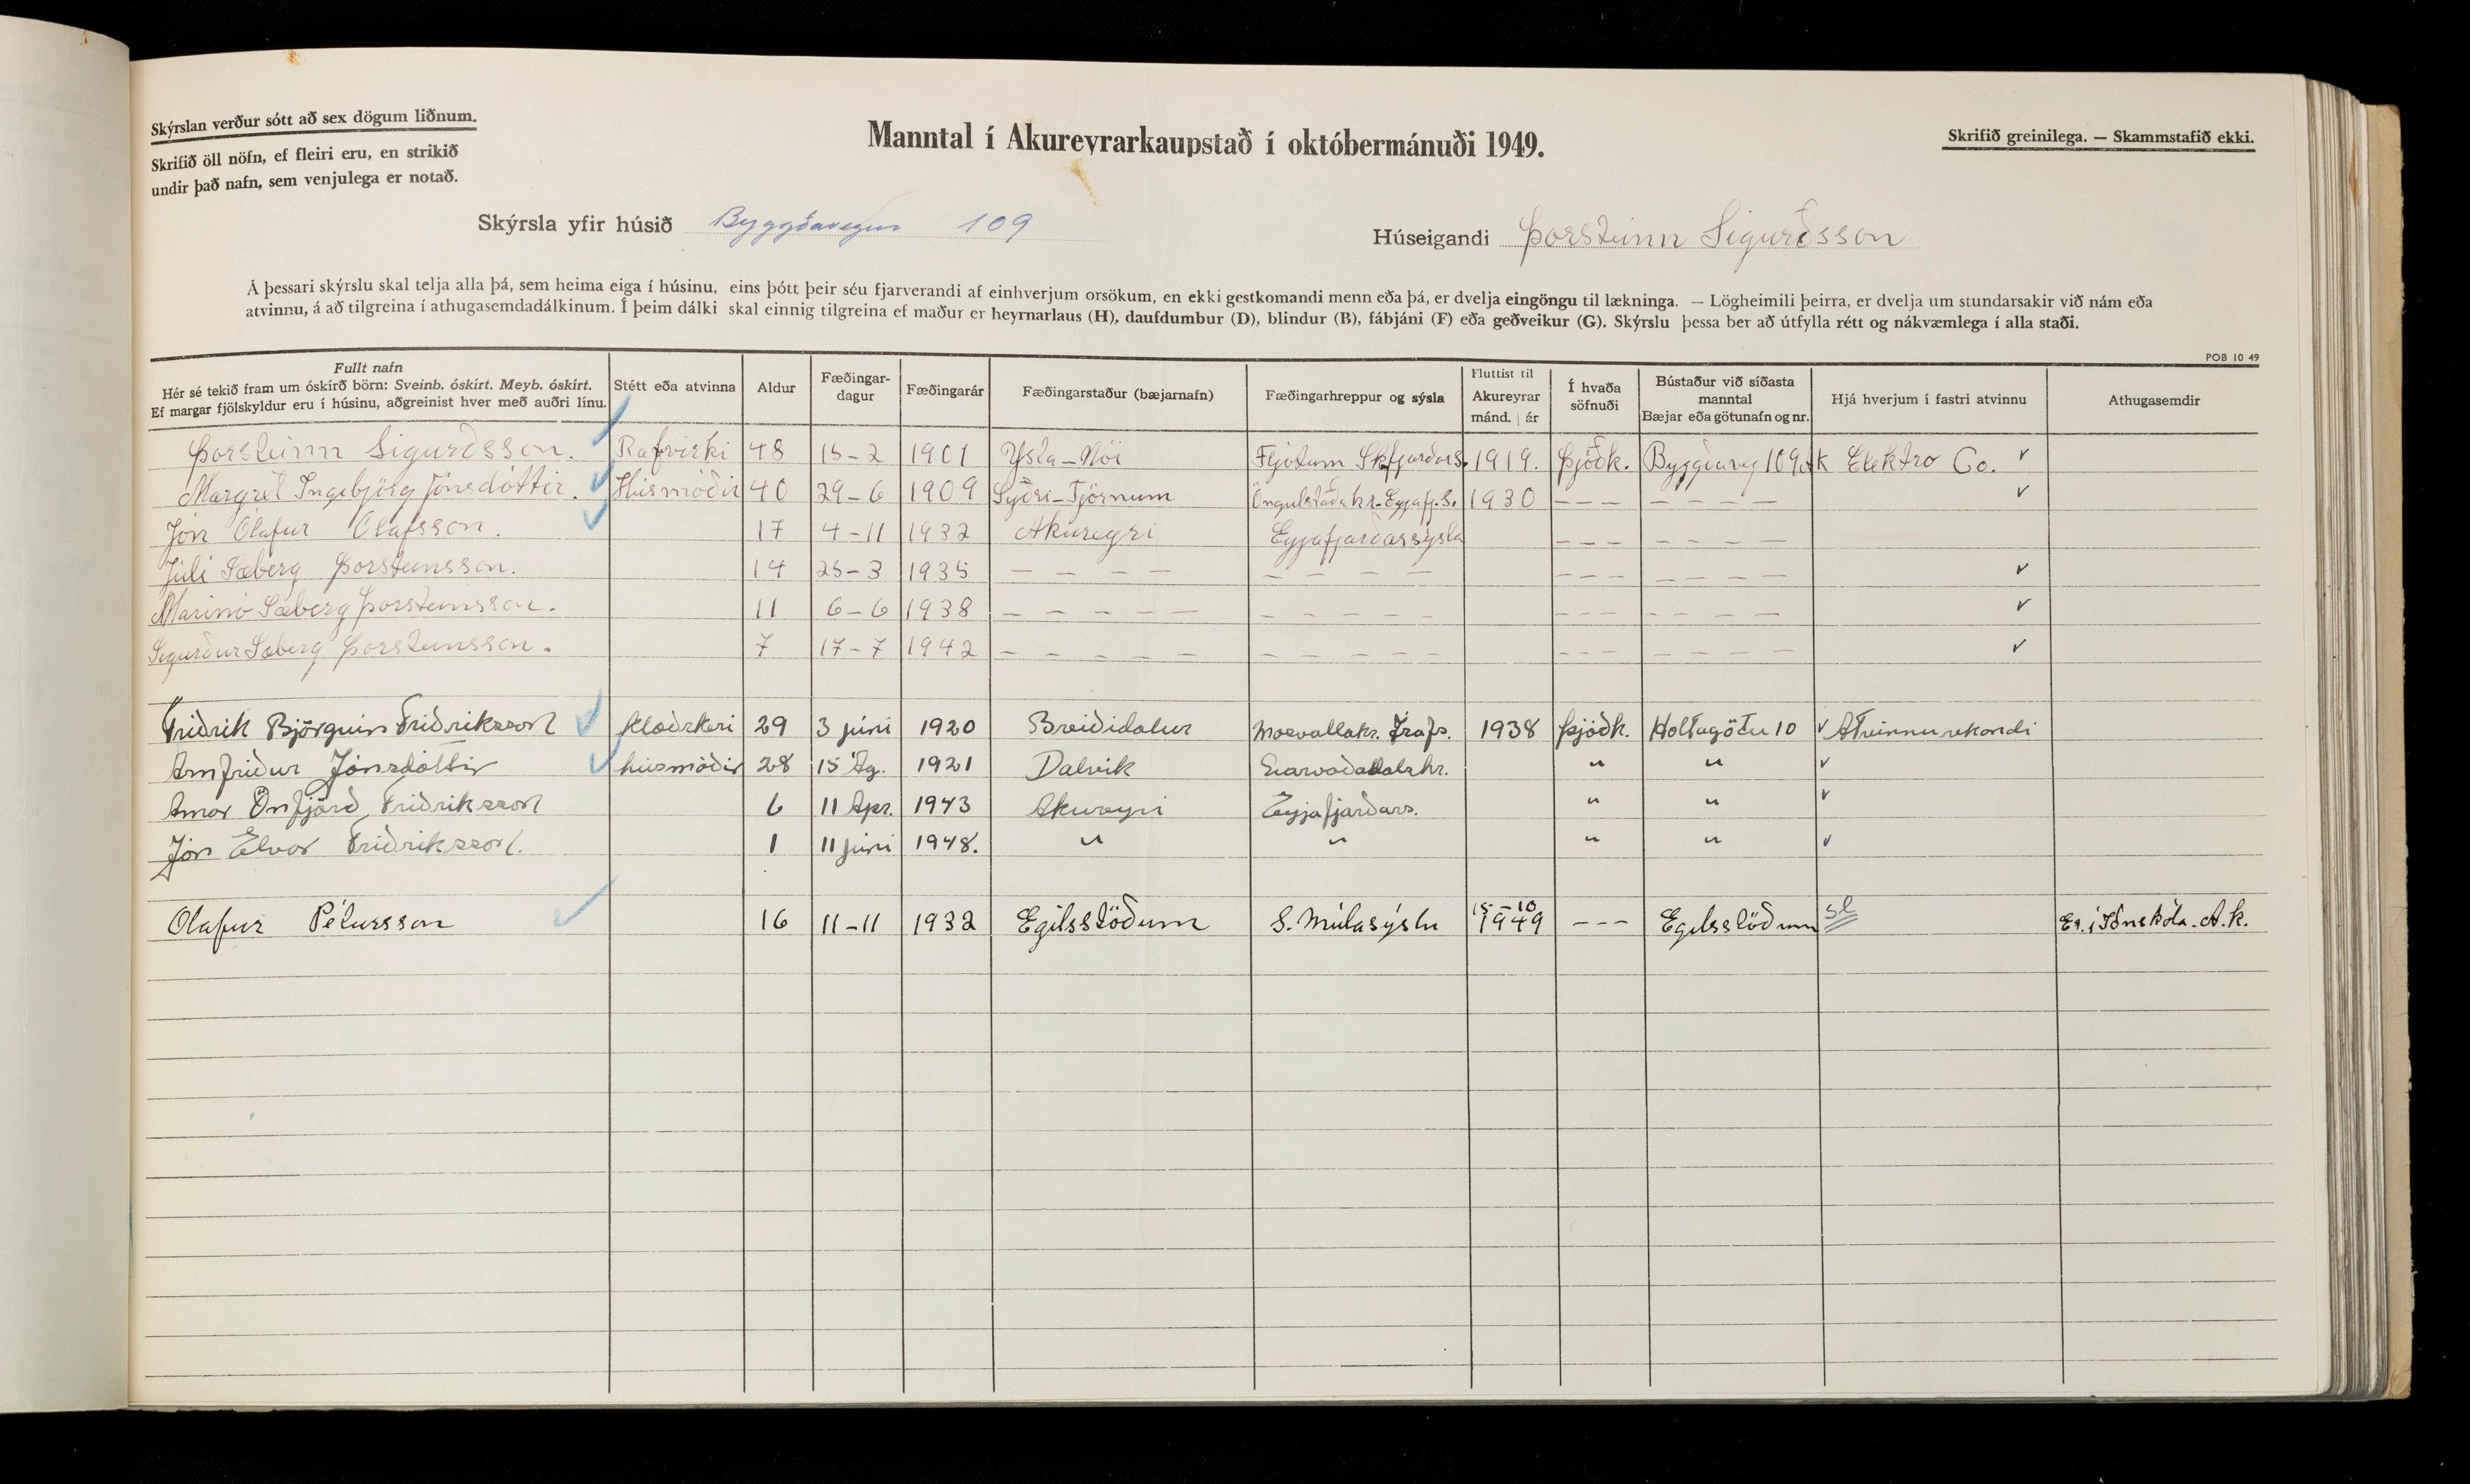 Skýrslan verður sótt að sex dögum liðnum.
Skrifið öll nöfn, ef fleiri eru, en strikið
undir það nafn, sem venjulega er notað.
Manntal í Akureyrarkaupstað í októbermánuði 1949.
Skrifið greinilega. — Skammstafið ekki.
Skýrsla yfir húsið Byggðavegur 109
Húseigandi Þorsteinn Sigurðsson
Á þessari skýrslu skal telja alla þá, sem heima eiga í húsinu, eins þótt þeir séu fjarverandi af einhverjum orsökum, en ekki gestkomandi menn eða þá, er dvelja eingöngu til lækninga. — Lögheimili þeirra, er dvelja um stundarsakir við nám eða
atvinnu, á að tilgreina í athugasemdadálkinum. Í þeim dálki skal einnig tilgreina ef maður er heyrnarlaus (H), daufdumbur (D), blindur (B), fábjáni (F) eða geðveikur (G). Skýrslu þessa ber að útfylla rétt og nákvæmlega í alla staði.
POB 10 49
Fullt nafn
Hér sé tekið fram um óskírð börn: Sveinb. óskírt. Meyb. óskírt.
Ef margar fjölskyldur eru í húsinu, aðgreinist hver með auðri línu.
Stétt eða atvinna
Aldur
Fæðingar-
dagur
Fæðingarár
Fæðingarstaður (bæjarnafn)
Fæðingarhreppur og sýsla
Fluttist til
Akureyrar
mánd. | ár
Í hvaða
söfnuði
Bústaður við síðasta
manntal
Bæjar eða götunafn og nr.
Hjá hverjum í fastri atvinnu
Athugasemdir
Þorsteinn Sigurðsson. Rafvirki 48 15-2 1901 Ysta-Mói Fljótum Skfjarðars. 1919. Þjóðk. Byggðaveg 109 Elektro Co. ✓
Margrét Ingibjörg Jónsdóttir. Húsmóðir 40 29-6 1909 Syðri-Tjörnum Öngulstaðahr. Eyjafj.s. 1930 --- ---- ✓
Jón Ólafur Ólafsson. 17 4-11 1932 Akureyri Eyjafjarðarsýsla --- ----
Júlí Sæberg Þorsteinsson. 14 25-3 1935 ---- ---- --- ---- ✓
Marinó Sæberg Þorsteinsson. 11 6-6 1938 ----- ----- --- ---- ✓
Sigurður Sæberg Þorsteinsson. 7 17-7 1942 ----- ----- --- ---- ✓
Friðrik Björgvin Friðriksson klæðskeri 29 3 júní 1920 Breiðidalur Mosvallahr. Ísafs. 1938 Þjóðk. Holtagötu 10 ✓ Atvinnurekandi
Arnfríður Jónsdóttir húsmóðir 28 15 Ág. 1921 Dalvik Svarvaðadalshr. " " ✓
Arnar Önfjörð Friðriksson 6 11 Apr. 1943 Akureyri Eyjafjarðars. " " ✓
Jón Elvar Friðriksson. 1 11 júní 1948. " " " " ✓
Olafur Pétursson 16 11-11 1932 Egilsstöðum S. Múlasýslu 15-10 1949 --- Egilsstöðum Er í Iðnskóla. A.k.